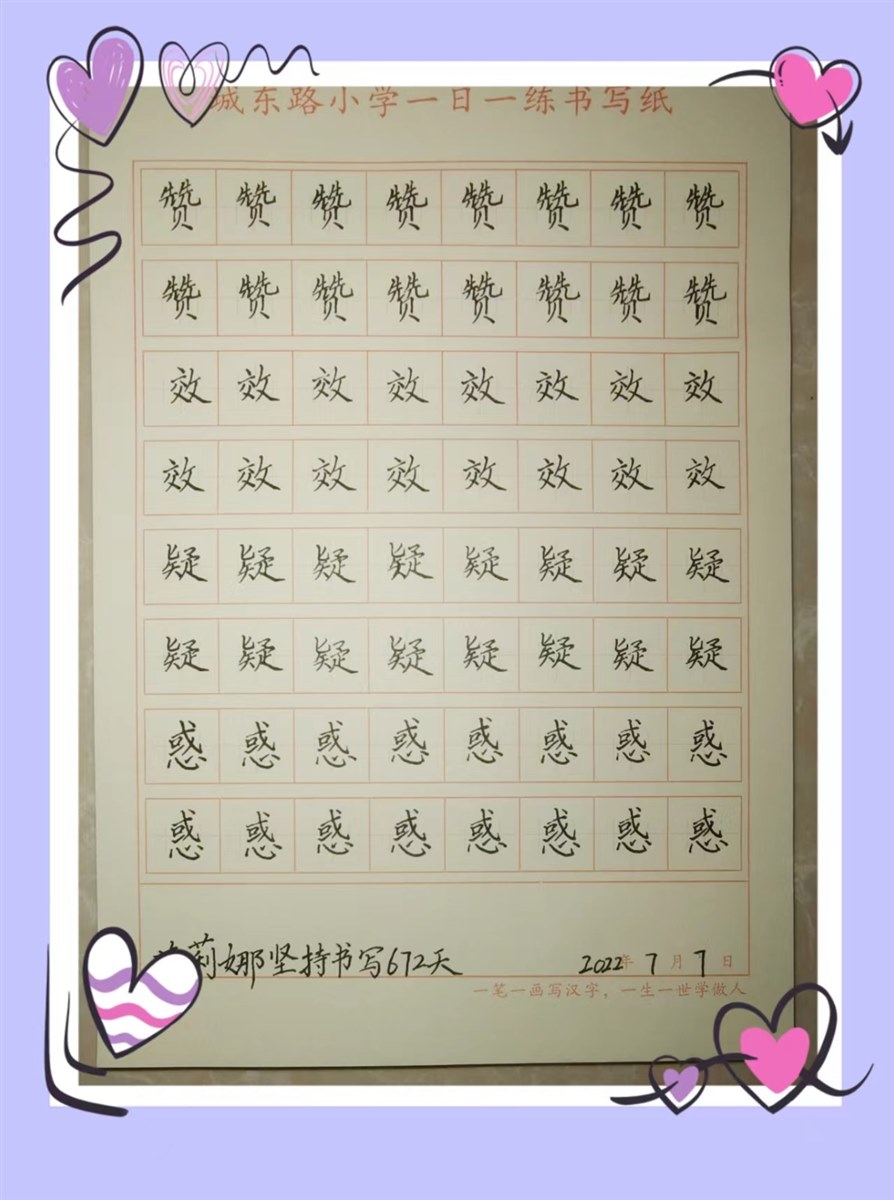 城东路小学一日一练书写纸
赞赞赞赞赞赞赞赞
赞赞赞赞赞赞赞赞
效效效效效效效效
效效效效效效效效
疑疑疑疑疑疑疑疑
疑疑疑疑疑疑疑疑
惑惑惑惑惑惑惑惑
惑惑惑惑惑惑惑惑
莉娜坚持书写672天
2022年7月7日
一笔一画写汉字，一生一世学做人